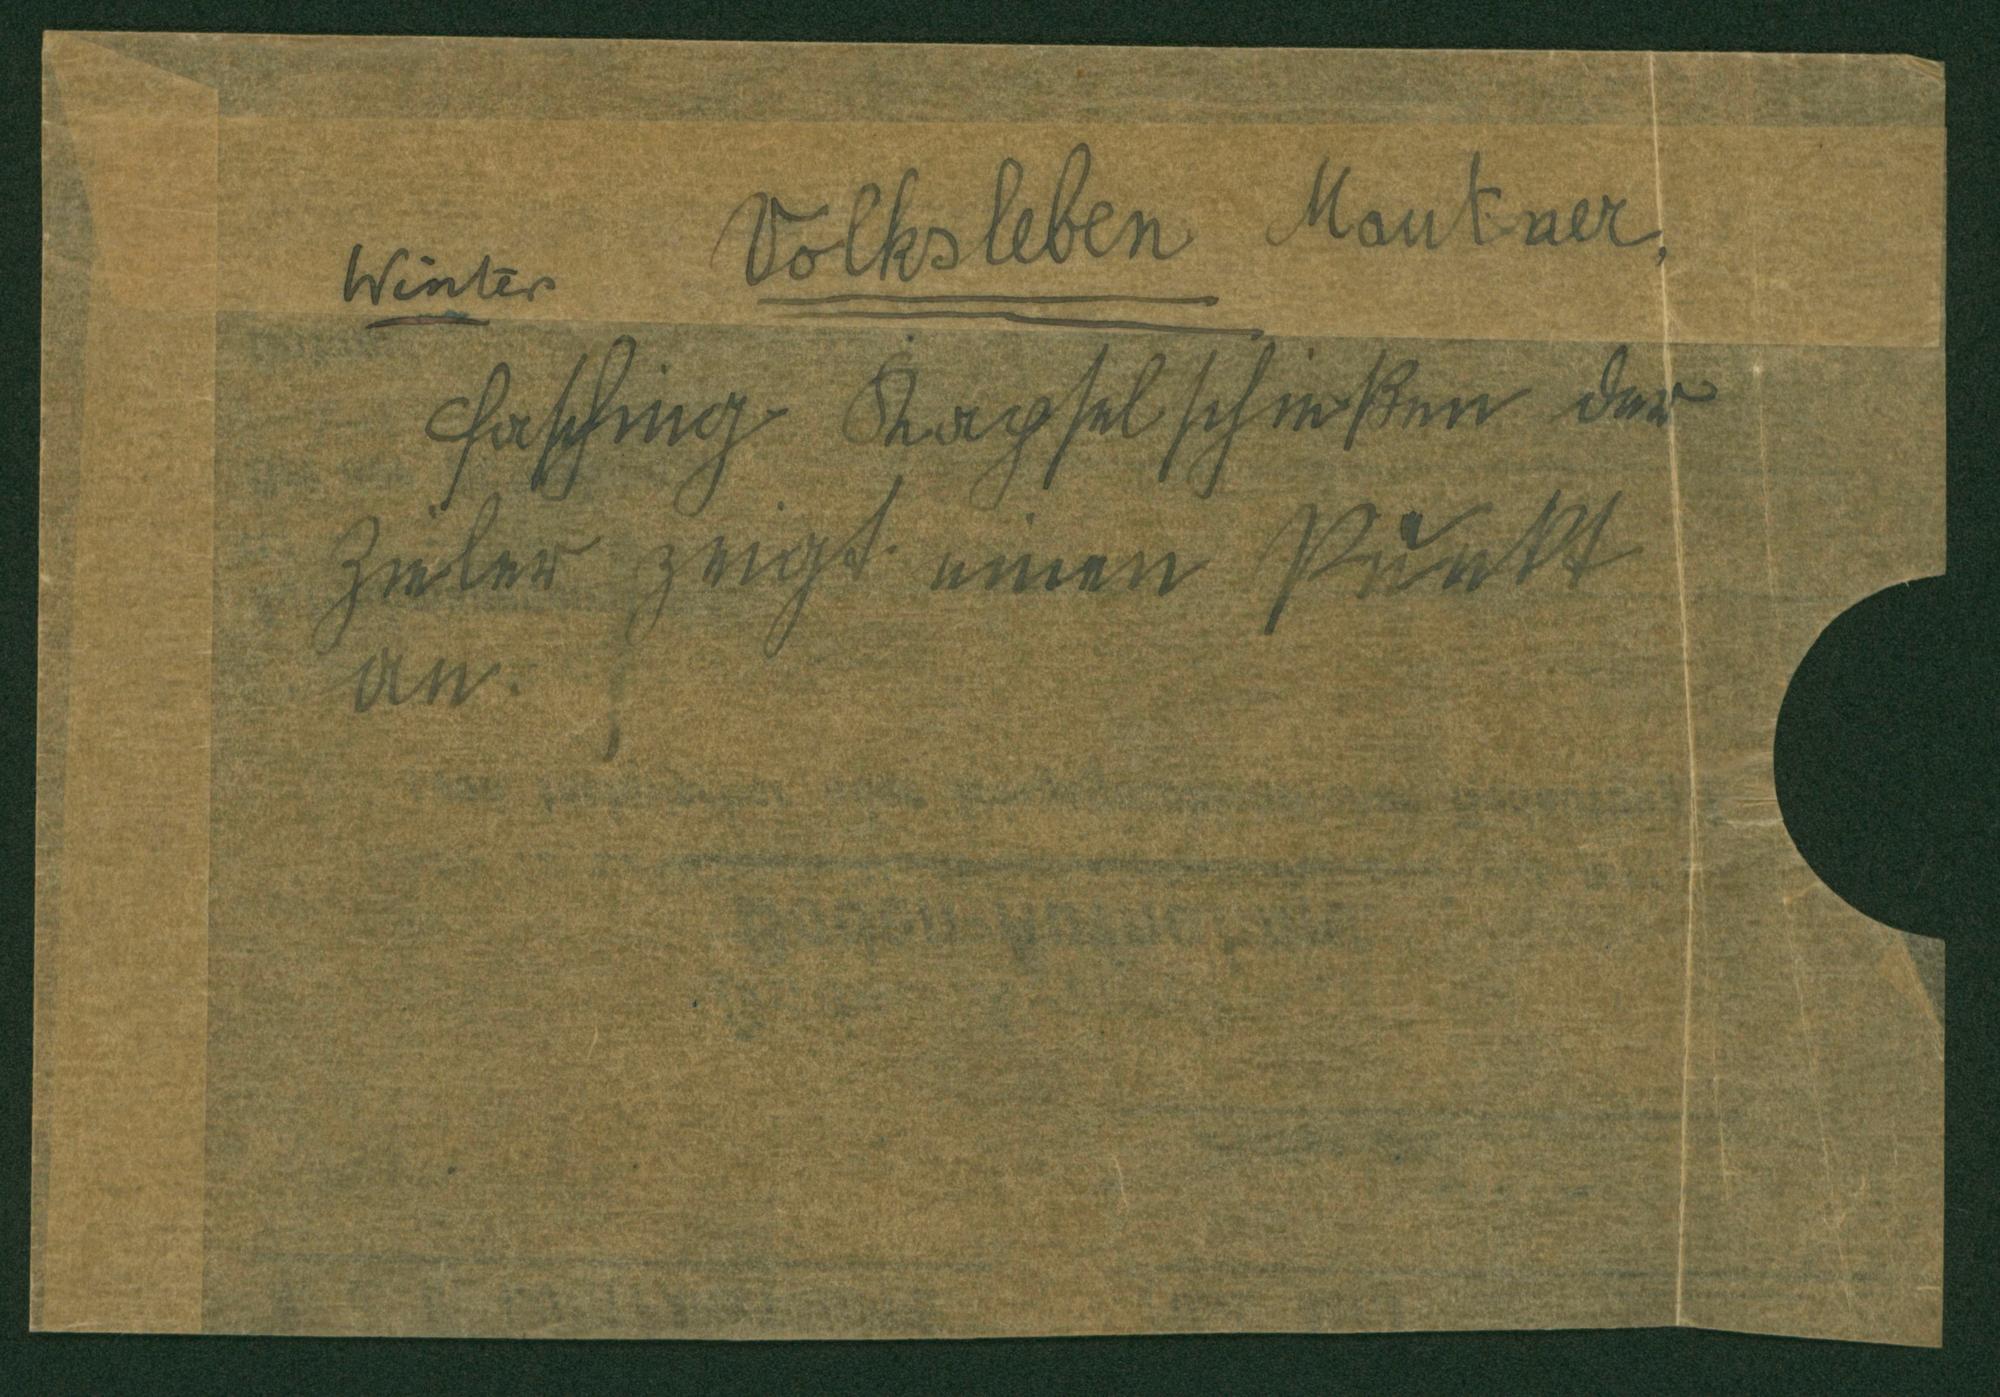 Winter Volksleben Mautner,
Fasching Kapselschießen der
Zieler zeigt einen Punkt
an.